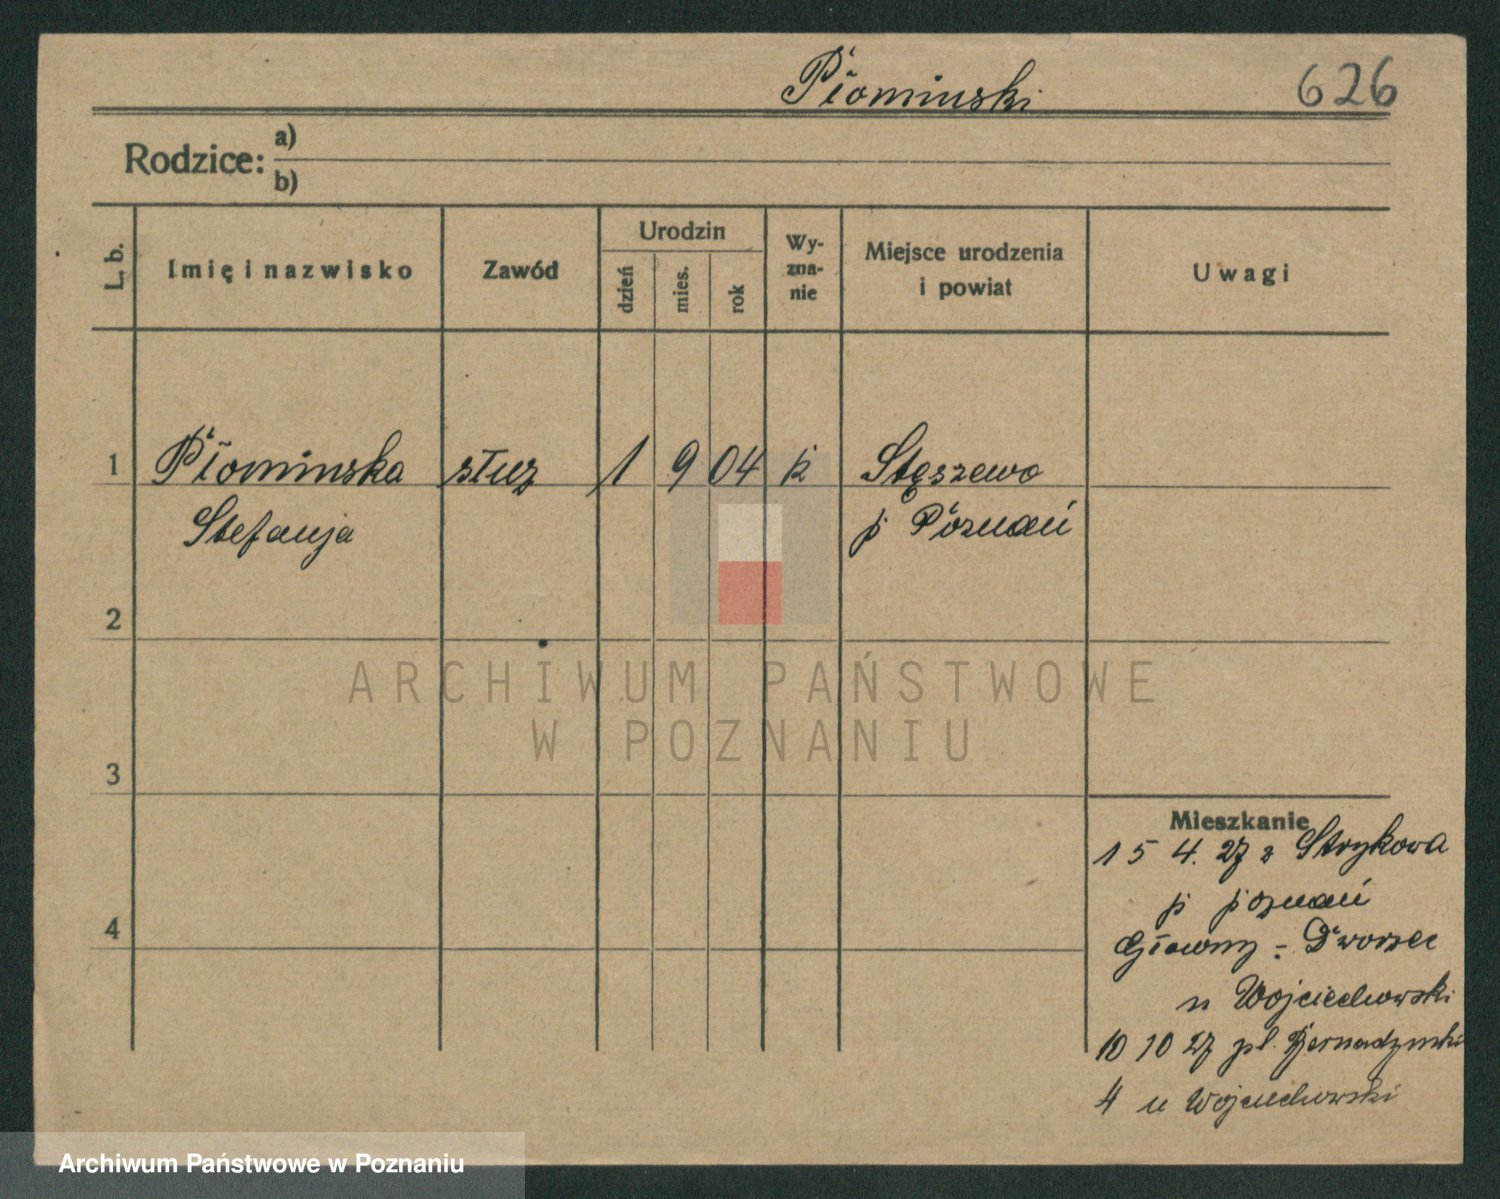 Płominski 626
Rodzice: a)
b)
L. b. Imię i nazwisko Zawód Urodzin dzień mies. rok Wyzna-nie Miejsce urodzenia i powiat Uwagi
1 Płominska służ 1 9 04 k Stęszewo
Stefanja p Poznań
2
3
Mieszkanie
15 4. 27 z Strykowa
p poznań
4 Głowny - Dworzec
u Wojciechowski
10 10 27 pl. Bernadynski
4 u Wojciechowski
ARCHIWUM PAŃSTWOWE
W POZNANIU
Archiwum Państwowe w Poznaniu